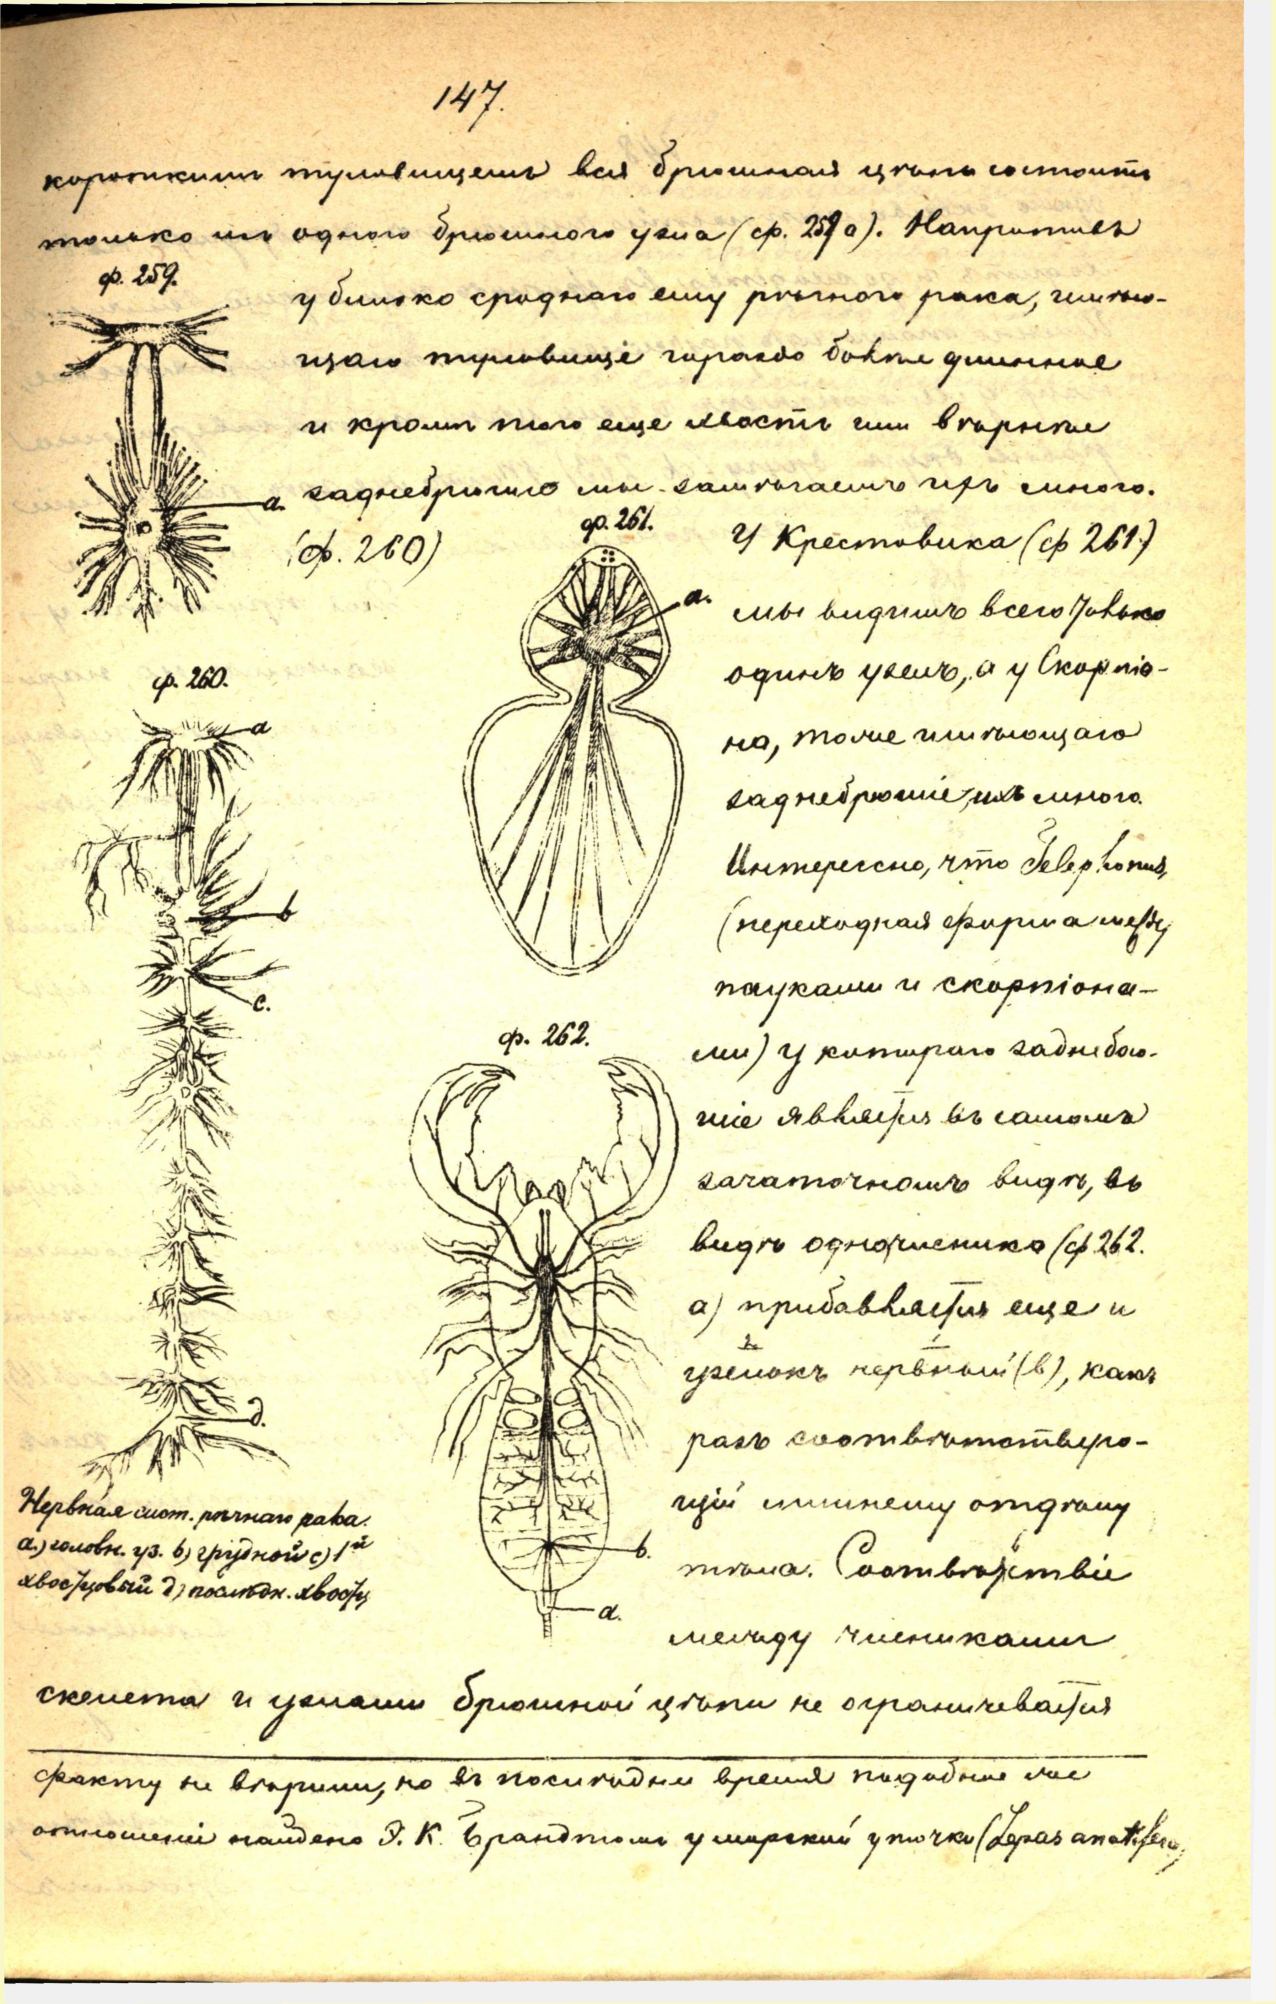 147.
короткимъ туловищемъ вся брюшная цѣпь состоитъ
только изъ одного брюшного узла (ф. 259 а). Напротивъ
ф. 259.
у близко сроднаго ему рѣчного рака, имѣю-
щаго туловище гораздо болѣе длинное
и кромѣ того еще хвостъ или вѣрнѣе
заднебрюшіе мы замѣчаемъ ихъ много.
а.
(ф. 260)
ф. 261.
а.
У Крестовика (ф 261)
мы видимъ всего только
одинъ узелъ, а у Скорпіо-
на, тоже имѣющаго
заднебрюшіе, ихъ много.
Интересно, что Telephonus,
(переходная форма между
пауками и скорпіона-
ми) у котораго заднебрю-
шіе является въ самомъ
зачаточномъ видѣ, въ
видѣ одночленика (ф 262.
а) прибавляется еще и
узелокъ нервный (в), какъ
разъ соотвѣтствую-
щій лишнему отдѣлу
тѣла. Соотвѣтствіе
между члениками
ф. 260.
а
b
c.
д.
Нервная сист. рѣчнаго рака.
а.) головн. уз. b) грудной c) 1й
хвостцовый д) послѣдн. хвостц
ф. 262.
b.
a.
скелета и узлами брюшной цѣпи не ограничевается
факту не вѣрили, но въ послѣднее время подобное же
отношеніе найдено Э. К. Брандтомъ у морской уточки (Lepas anatifera)